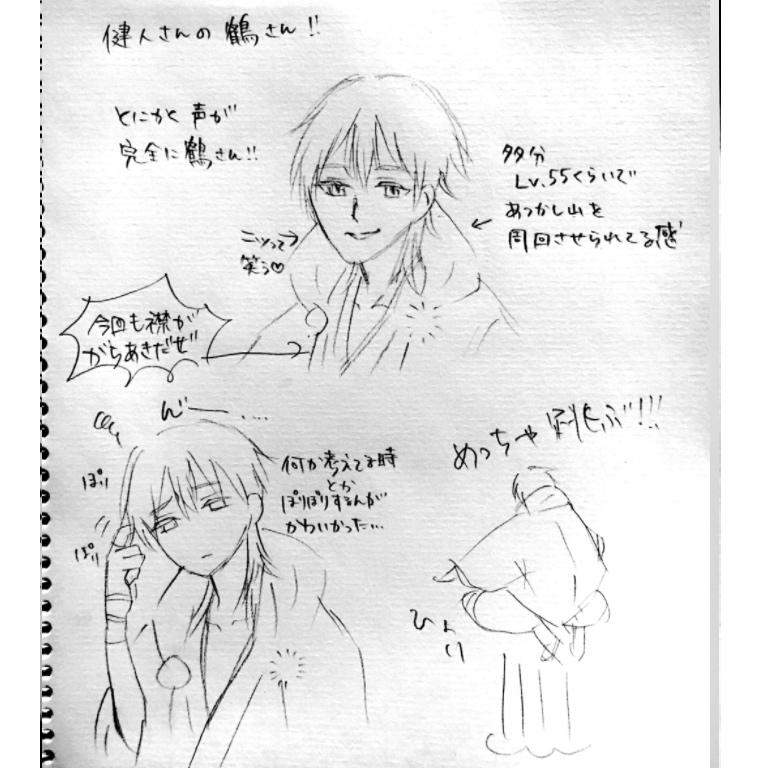 健人さんの鶴さん!!
とにかく声が
完全に鶴さん!!
多分
Lv.55くらいで
あつかし山を
周回させられてる感
ニッって
笑う♡
今回も襟が
がらあきだぜ
んー....
ぽり
ぽり
何か考えてる時
とか
ぽりぽりするんが
かわいかった...
めっちゃ跳ぶ!!!
ひょい